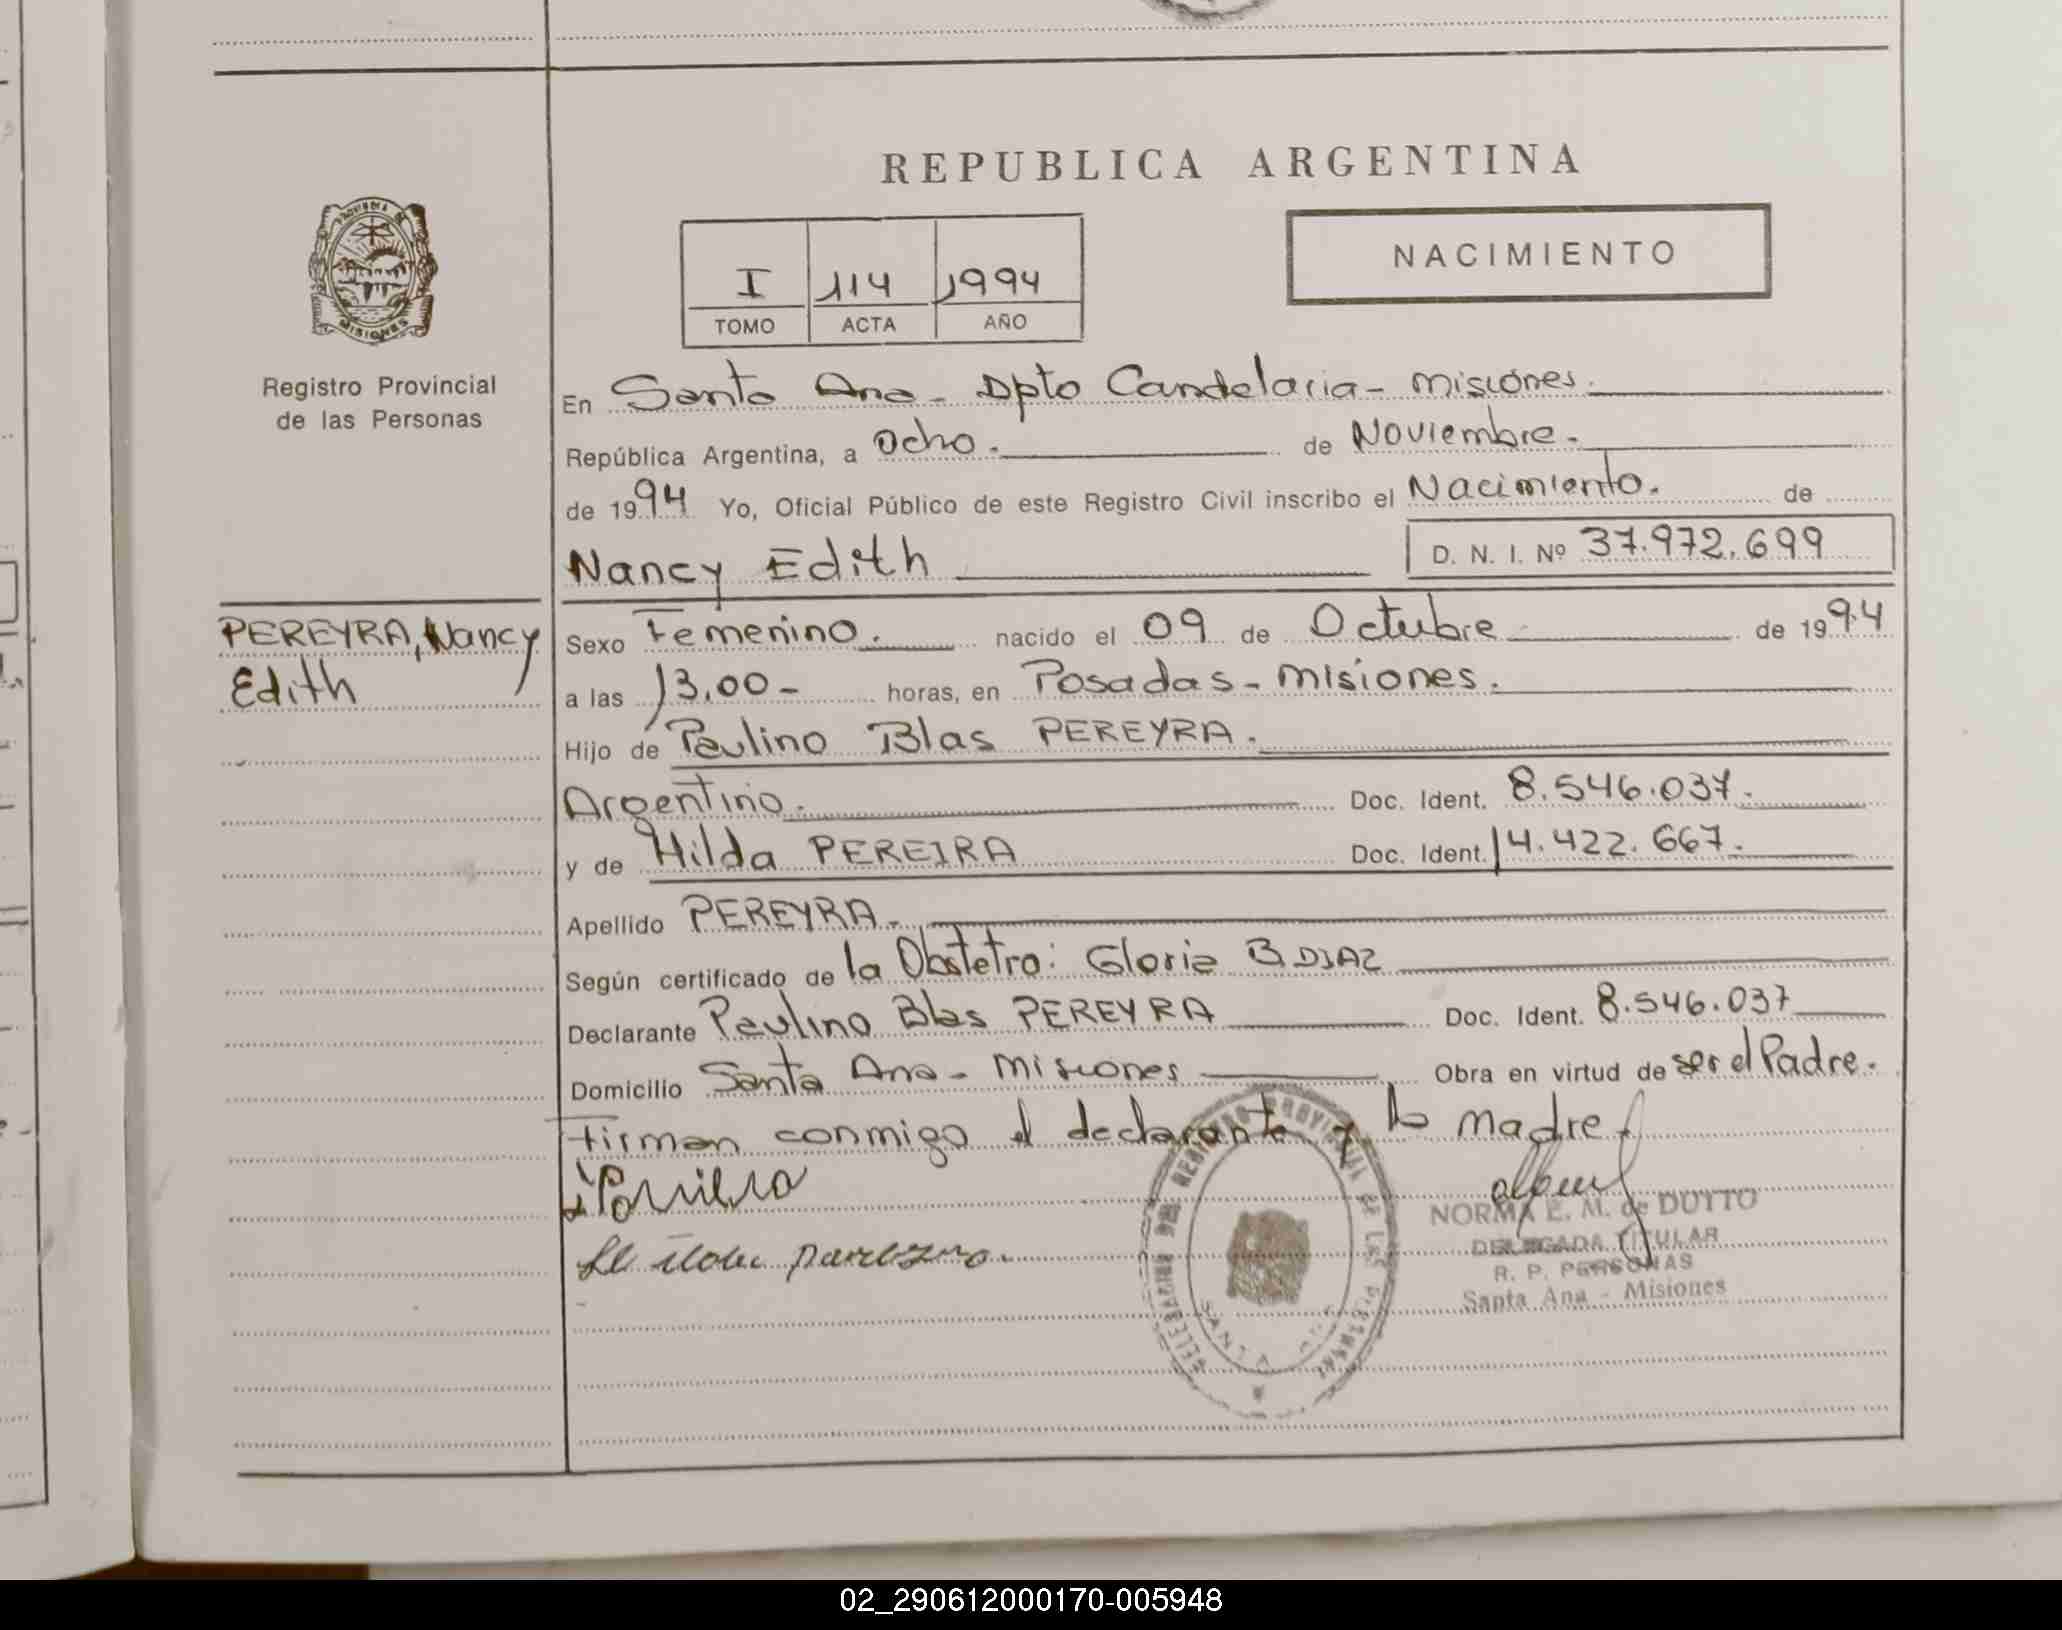 REPUBLICA ARGENTINA
PROVINCIA DE
MISIONES
Registro Provincial
de las Personas
I 114 1994
TOMO ACTA AÑO
NACIMIENTO
En Santa Ana - Dpto Candelaria - Misiones.
República Argentina, a Ocho. de Noviembre.
de 1994 Yo, Oficial Público de este Registro Civil inscribo el Nacimiento. de
Nancy Edith D. N. I. Nº 37.972.699
PEREYRA, Nancy
Edith
Sexo Femenino. nacido el 09 de Octubre de 1994
a las 13,00 - horas, en Posadas - Misiones.
Hijo de Paulino Blas PEREYRA.
Argentino. Doc. Ident. 8.546.037.
y de Hilda PEREIRA Doc. Ident. 14.422.667.
Apellido PEREYRA.
Según certificado de la Obstetra: Gloria B DIAZ
Declarante Paulino Blas PEREYRA Doc. Ident. 8.546.037
Domicilio Santa Ana - Misiones Obra en virtud de ser el Padre.
Firman conmigo el declarante y la madre.
NORMA E. M. de DUTTO
DELEGADA TITULAR
R. P. PERSONAS
Santa Ana - Misiones
REGISTRO PROVINCIAL DE LAS PERSONAS
SANTA
02_290612000170-005948